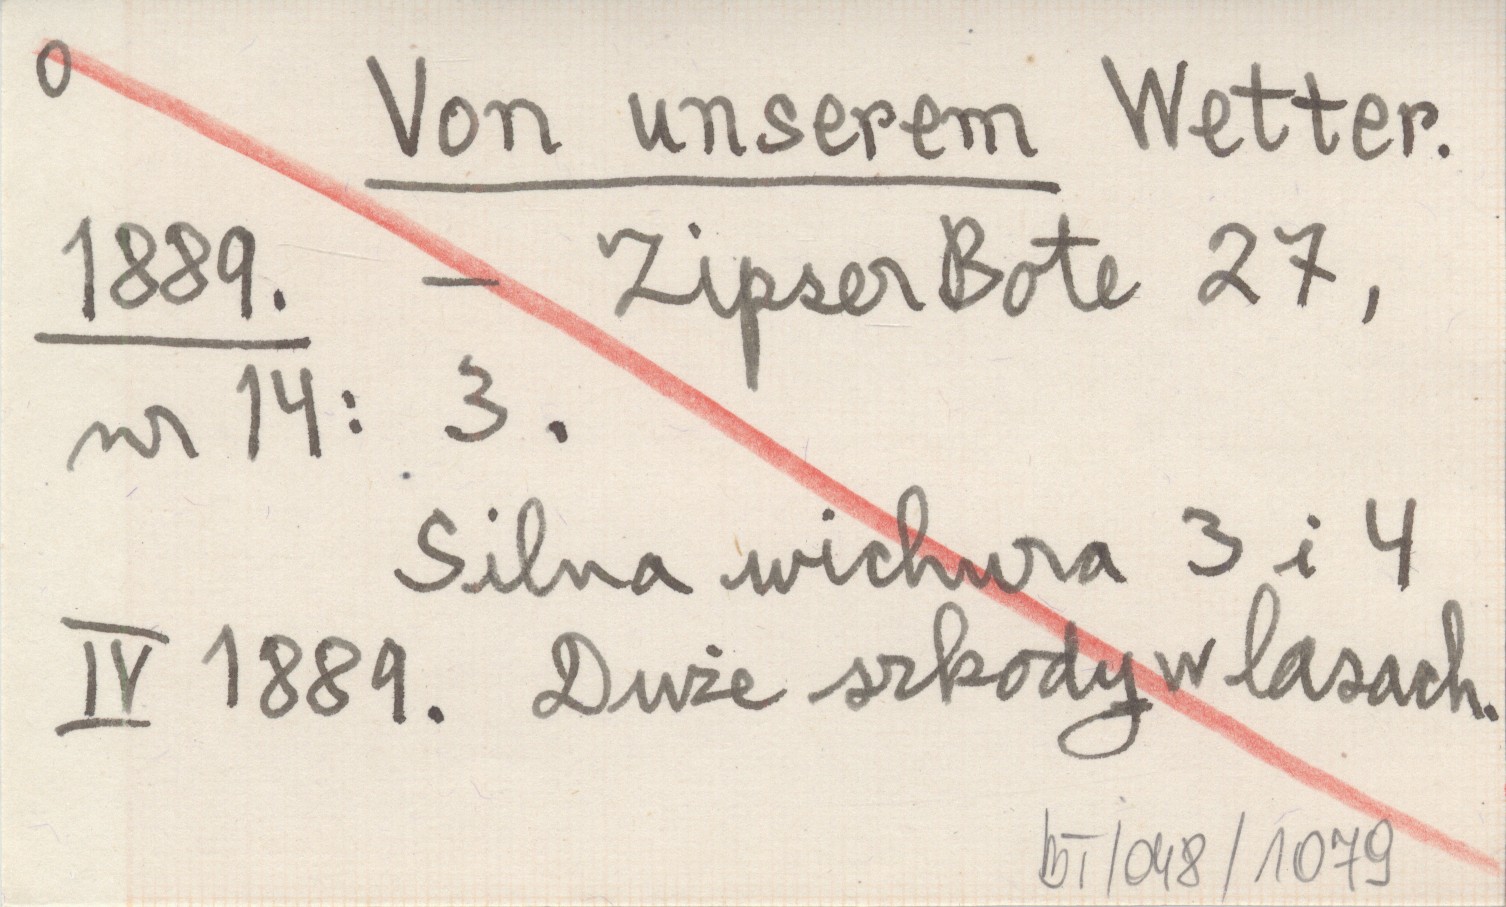 0 Von unserem Wetter.
1889. — Zipser Bote 27,
nr 14: 3.
Silna wichura 3 i 4
IV 1889. Duże szkody w lasach.
bT/048/1079